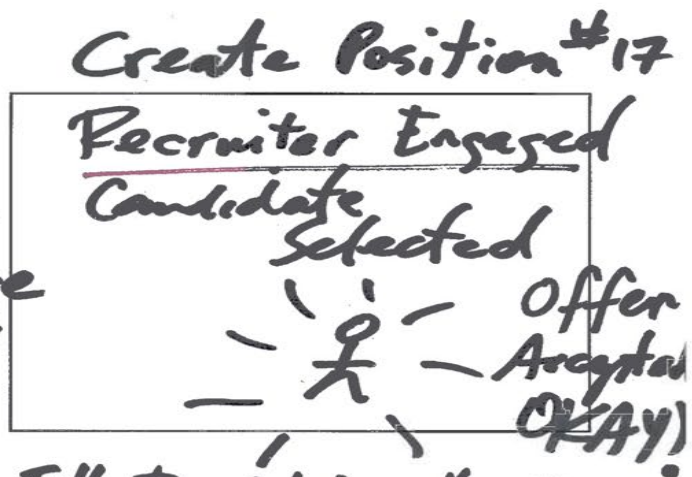 Create Position #17
Recruiter Engaged
Candidate
Selected
Offer
Accepted
OKAY)